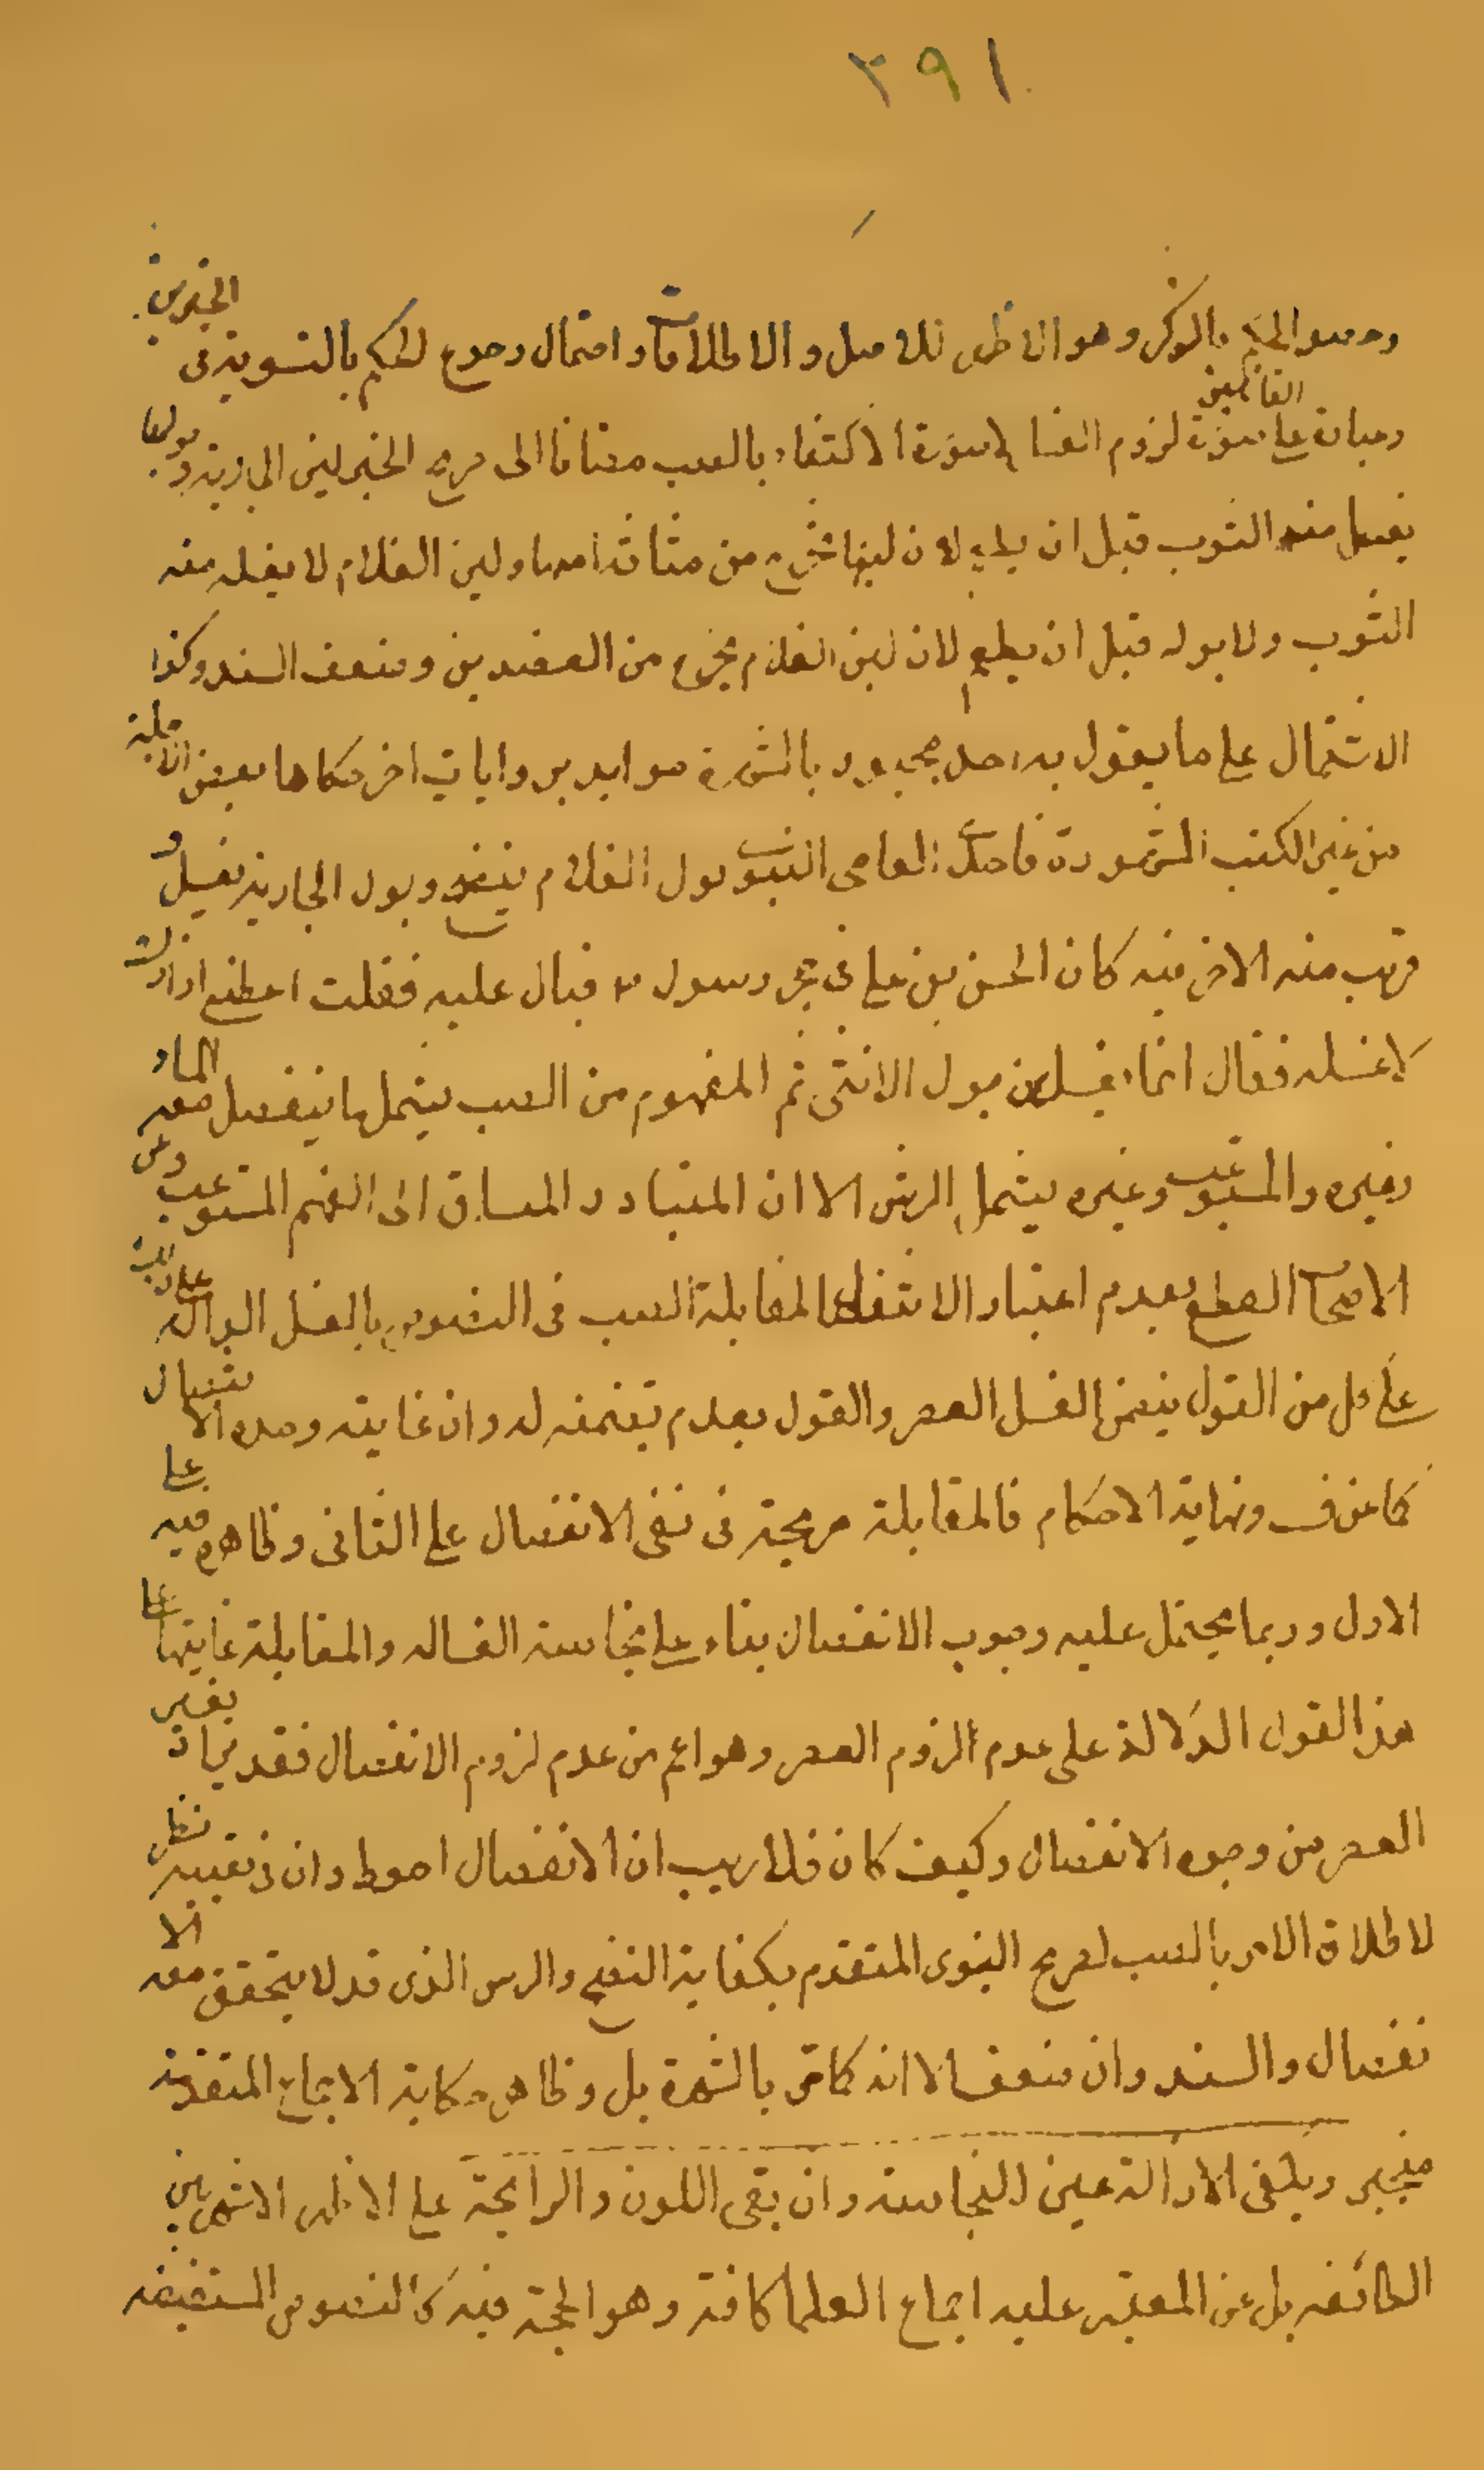 ٣٩١
وخصوا الحكم بالذكر وهو الاظهر للاصل والاطلاقات واحتمال رجوع الحكم بالتسوية في الخبرين
القائلين
وعبارة على صورة لزوم الغسل لا صورة الاكتفاء بالصب مضافا الى صريح الخبر لبن الجارية وبولها
يغسل منه الثوب قبل ان يطعم لان لبنها يخرج من مثانة امها ولبن الغلام لا يغسل منه
الثوب ولا بوله قبل ان يطعم لان لبن الغلام يخرج من العضدين وضعف السند وكذا
الاشتمال على ما يقول به احد مجبور بالشهرة مؤايد بروايات اخر حكاها بعض الاجلة
من غير الكتب المشهورة فاحدها العامي النبوي بول الغلام ينضح وبول الجارية يغسل و
قريب منه الاخر فيه كان الحسن بن علي في حجر رسول فبال عليه فقلت اعطني ازارك
لاغسله فقال انما يغسل من بول الانثى ثم المفهوم من الصب يشمل ما ينفصل معه الماء
وغيره والمستوعب وغيره يشمل الرش الا ان المتبادر المساق الى الفهم المستوعب وعن
الاصحاب القطع بعدم اعتبار الانفصال لمقابلة الصب في النصوص بالغسل الدالة على
على كل من القول بتضمن الغسل العصر والقول بعدم تضمنه له وان غايته وحده الانفصال
كما عن ف ونهاية الاحكام فالمقابلة صريحة في نفي الانفصال على الثاني وظاهره فيه على
الاول وربما يحتمل عليه وجوب الانفصال بناء على نجاسة الغسالة والمقابلة غايتها على
هذا القول الدلالة على عدم لزوم العصر وهو اعم من عدم لزوم الانفصال فقد يجاب بغير
العصر من وجوه الانفصال وكيف كان فلا ريب ان الانفصال احوط وان في تعينه نظر
لاطلاق الامر بالصب لصريح النبوي المتقدم بكفاية النضح والرش الذي قد لا يتحقق معه الا
نفصال والسند وان ضعف الا انه كما مر بالشهرة بل وظاهر حكاية الاجماع المتقدمة
منجبر ويكفي الازالة عين النجاسة وان بقي اللون والرايحة على الاظهر الاشهر بين
الطائفه بل عن المعتبر عليه اجماع العلما كافة وهو الحجة فيه كالنصوص المستفيضه